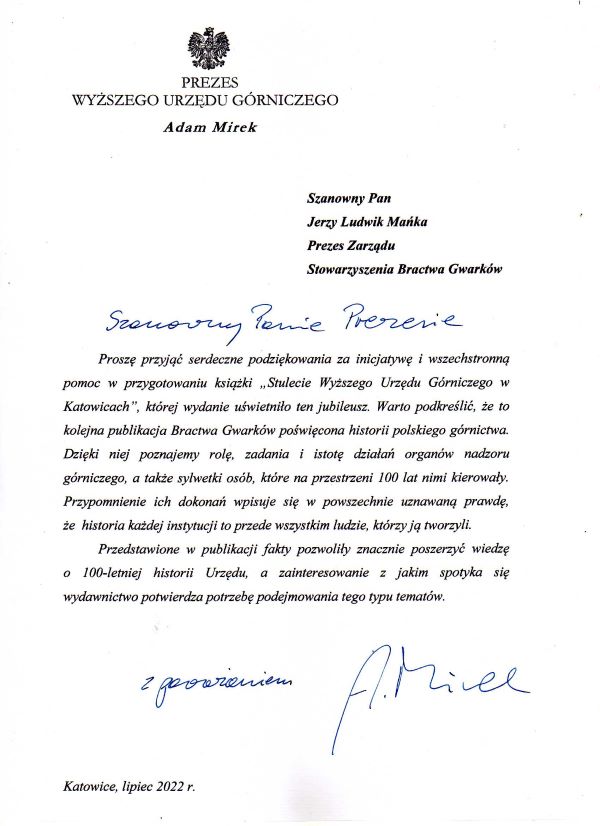 PREZES
WYŻSZEGO URZĘDU GÓRNICZEGO
Adam Mirek
Szanowny Pan
Jerzy Ludwik Mańka
Prezes Zarządu
Stowarzyszenia Bractwa Gwarków
Szanowny Panie Prezesie
Proszę przyjąć serdeczne podziękowania za inicjatywę i wszechstronną
pomoc w przygotowaniu książki „Stulecie Wyższego Urzędu Górniczego w
Katowicach”, której wydanie uświetniło ten jubileusz. Warto podkreślić, że to
kolejna publikacja Bractwa Gwarków poświęcona historii polskiego górnictwa.
Dzięki niej poznajemy rolę, zadania i istotę działań organów nadzoru
górniczego, a także sylwetki osób, które na przestrzeni 100 lat nimi kierowały.
Przypomnienie ich dokonań wpisuje się w powszechnie uznawaną prawdę,
że historia każdej instytucji to przede wszystkim ludzie, którzy ją tworzyli.
Przedstawione w publikacji fakty pozwoliły znacznie poszerzyć wiedzę
o 100-letniej historii Urzędu, a zainteresowanie z jakim spotyka się
wydawnictwo potwierdza potrzebę podejmowania tego typu tematów.
z poważaniem
A. Mirek
Katowice, lipiec 2022 r.